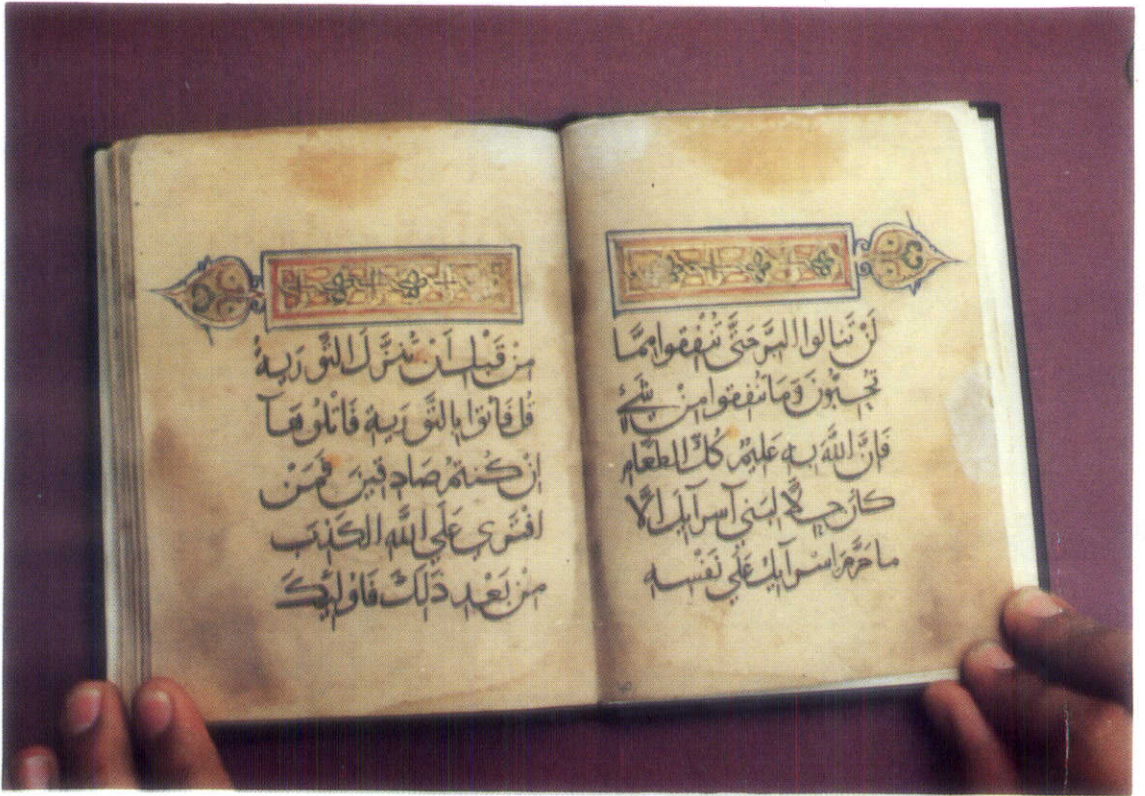 لَنْ تَنالوا البِرَّ حَتّىٰ تُنْفِقوا مِمَّا
تُحِبّونَ وَمَا تُنفِقوا مِنْ شَيْءٍ
فَإنَّ اللَّهَ بِهِ عَليمٌ كُلُّ الطَّعَامِ
كانَ حِلًّا لِبَنى آسرآيلَ الَّا
ما حَرَّمَ اسْرآيلُ عَلَي نَفْسِهِ
مِنْ قَبْلِ اَنْ تُنَزَّلَ التَّوْرَيةُ
قُل فَاتوا بِالتَّوْرَيةِ فَاتْلُوهَآ
اِنْ كُنتُمْ صَادِقينَ فَمَنْ
افْتَرَي عَلَي اللَّهِ الكَذِبَ
مِنْ بَعْدِ ذَلِكَ فَاوُلَيِكَ